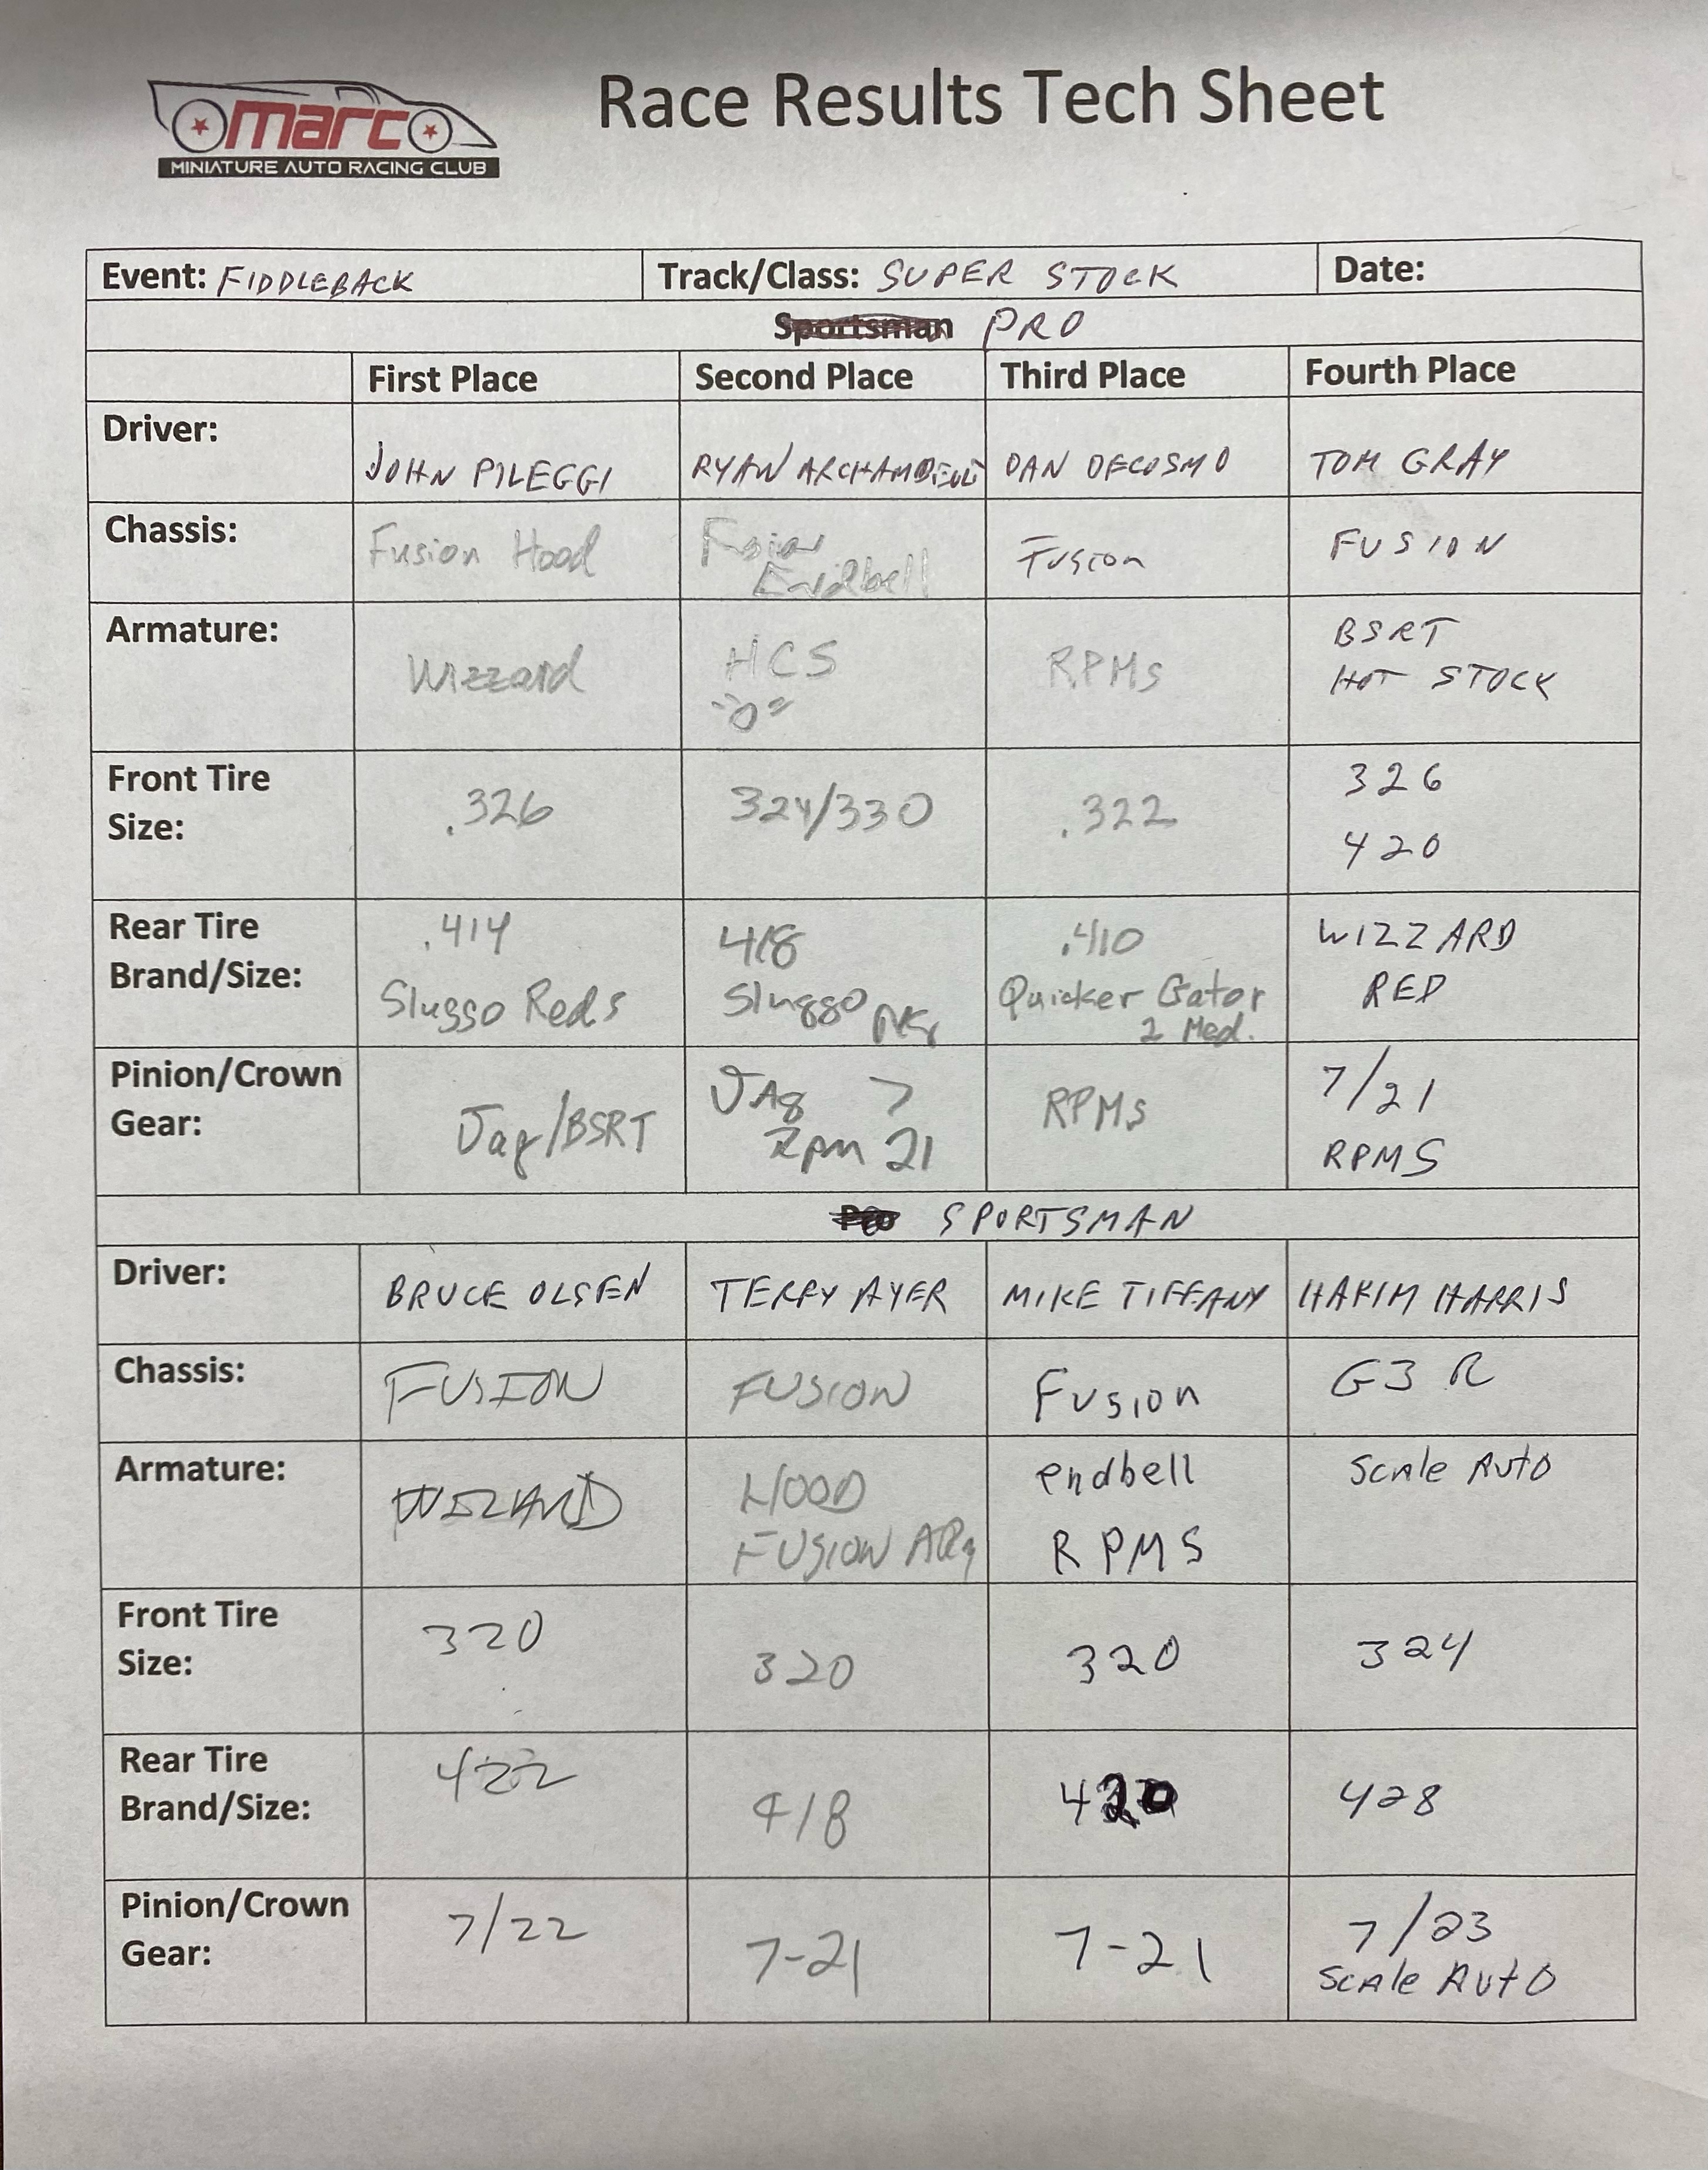 marc
MINIATURE AUTO RACING CLUB
Race Results Tech Sheet
Event: FIDDLEBACK Track/Class: SUPER STOCK Date:
Sportsman PRO
First Place Second Place Third Place Fourth Place
Driver:
JOHN PILEGGI RYAN DAN DECOSMO TOM GRAY
Chassis:
Fusion Hood Endbell Fusion FUSION
Armature:
Wizzard HCS RPMs BSRT
HOT STOCK
"0"
Front Tire
Size:
.326 324/330 .322 326
420
Rear Tire
Brand/Size:
.414 418 .410 WIZZARD
Sluggo Reds Sluggo Quicker Gator RED
2 Med.
Pinion/Crown
Gear:
Jag/BSRT Jag 7 RPMs 7/21
Rpm 21 RPMS
Pro SPORTSMAN
Driver: BRUCE OLSEN TERRY AYER MIKE TIFFANY HAKIM HARRIS
Chassis: FUSION FUSION Fusion G3 R
Armature: WIZARD HOOD endbell Scale Auto
FUSION RPMS
Front Tire
Size:
320 320 320 324
Rear Tire
Brand/Size:
422 418 420 428
Pinion/Crown
Gear:
7/22 7-21 7-21 7/23
Scale Auto